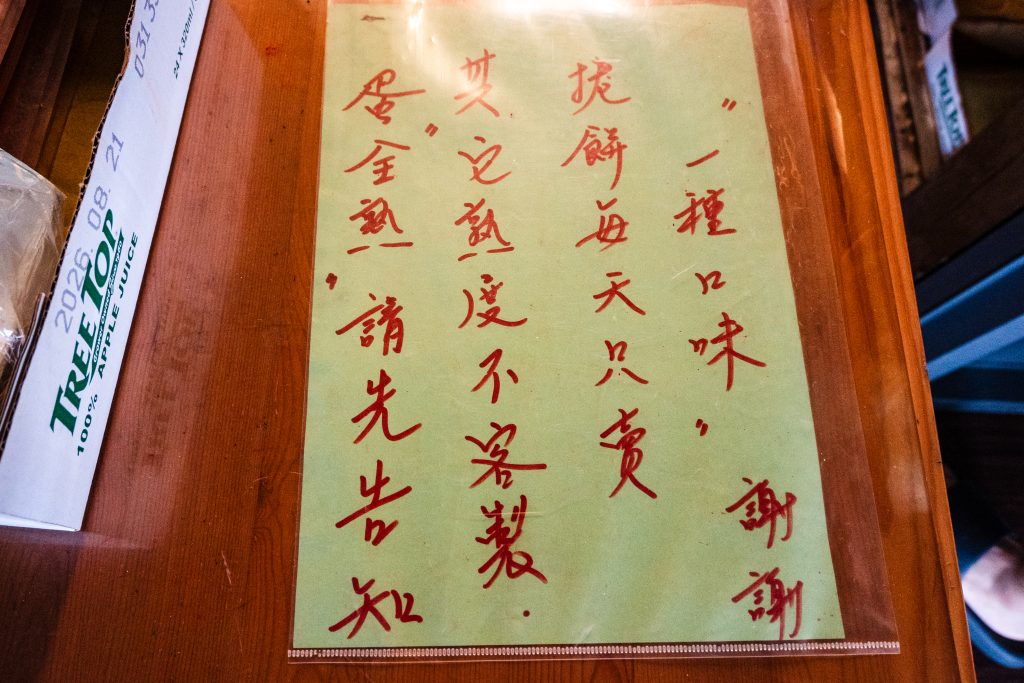 蛋"全熟"請先告知
其它熟度不客製.
捲餅每天只賣
"一種口味" 謝謝
2026. 08. 21
TREE TOP
100% APPLE JUICE
24 X 320ml/
TREE TOP